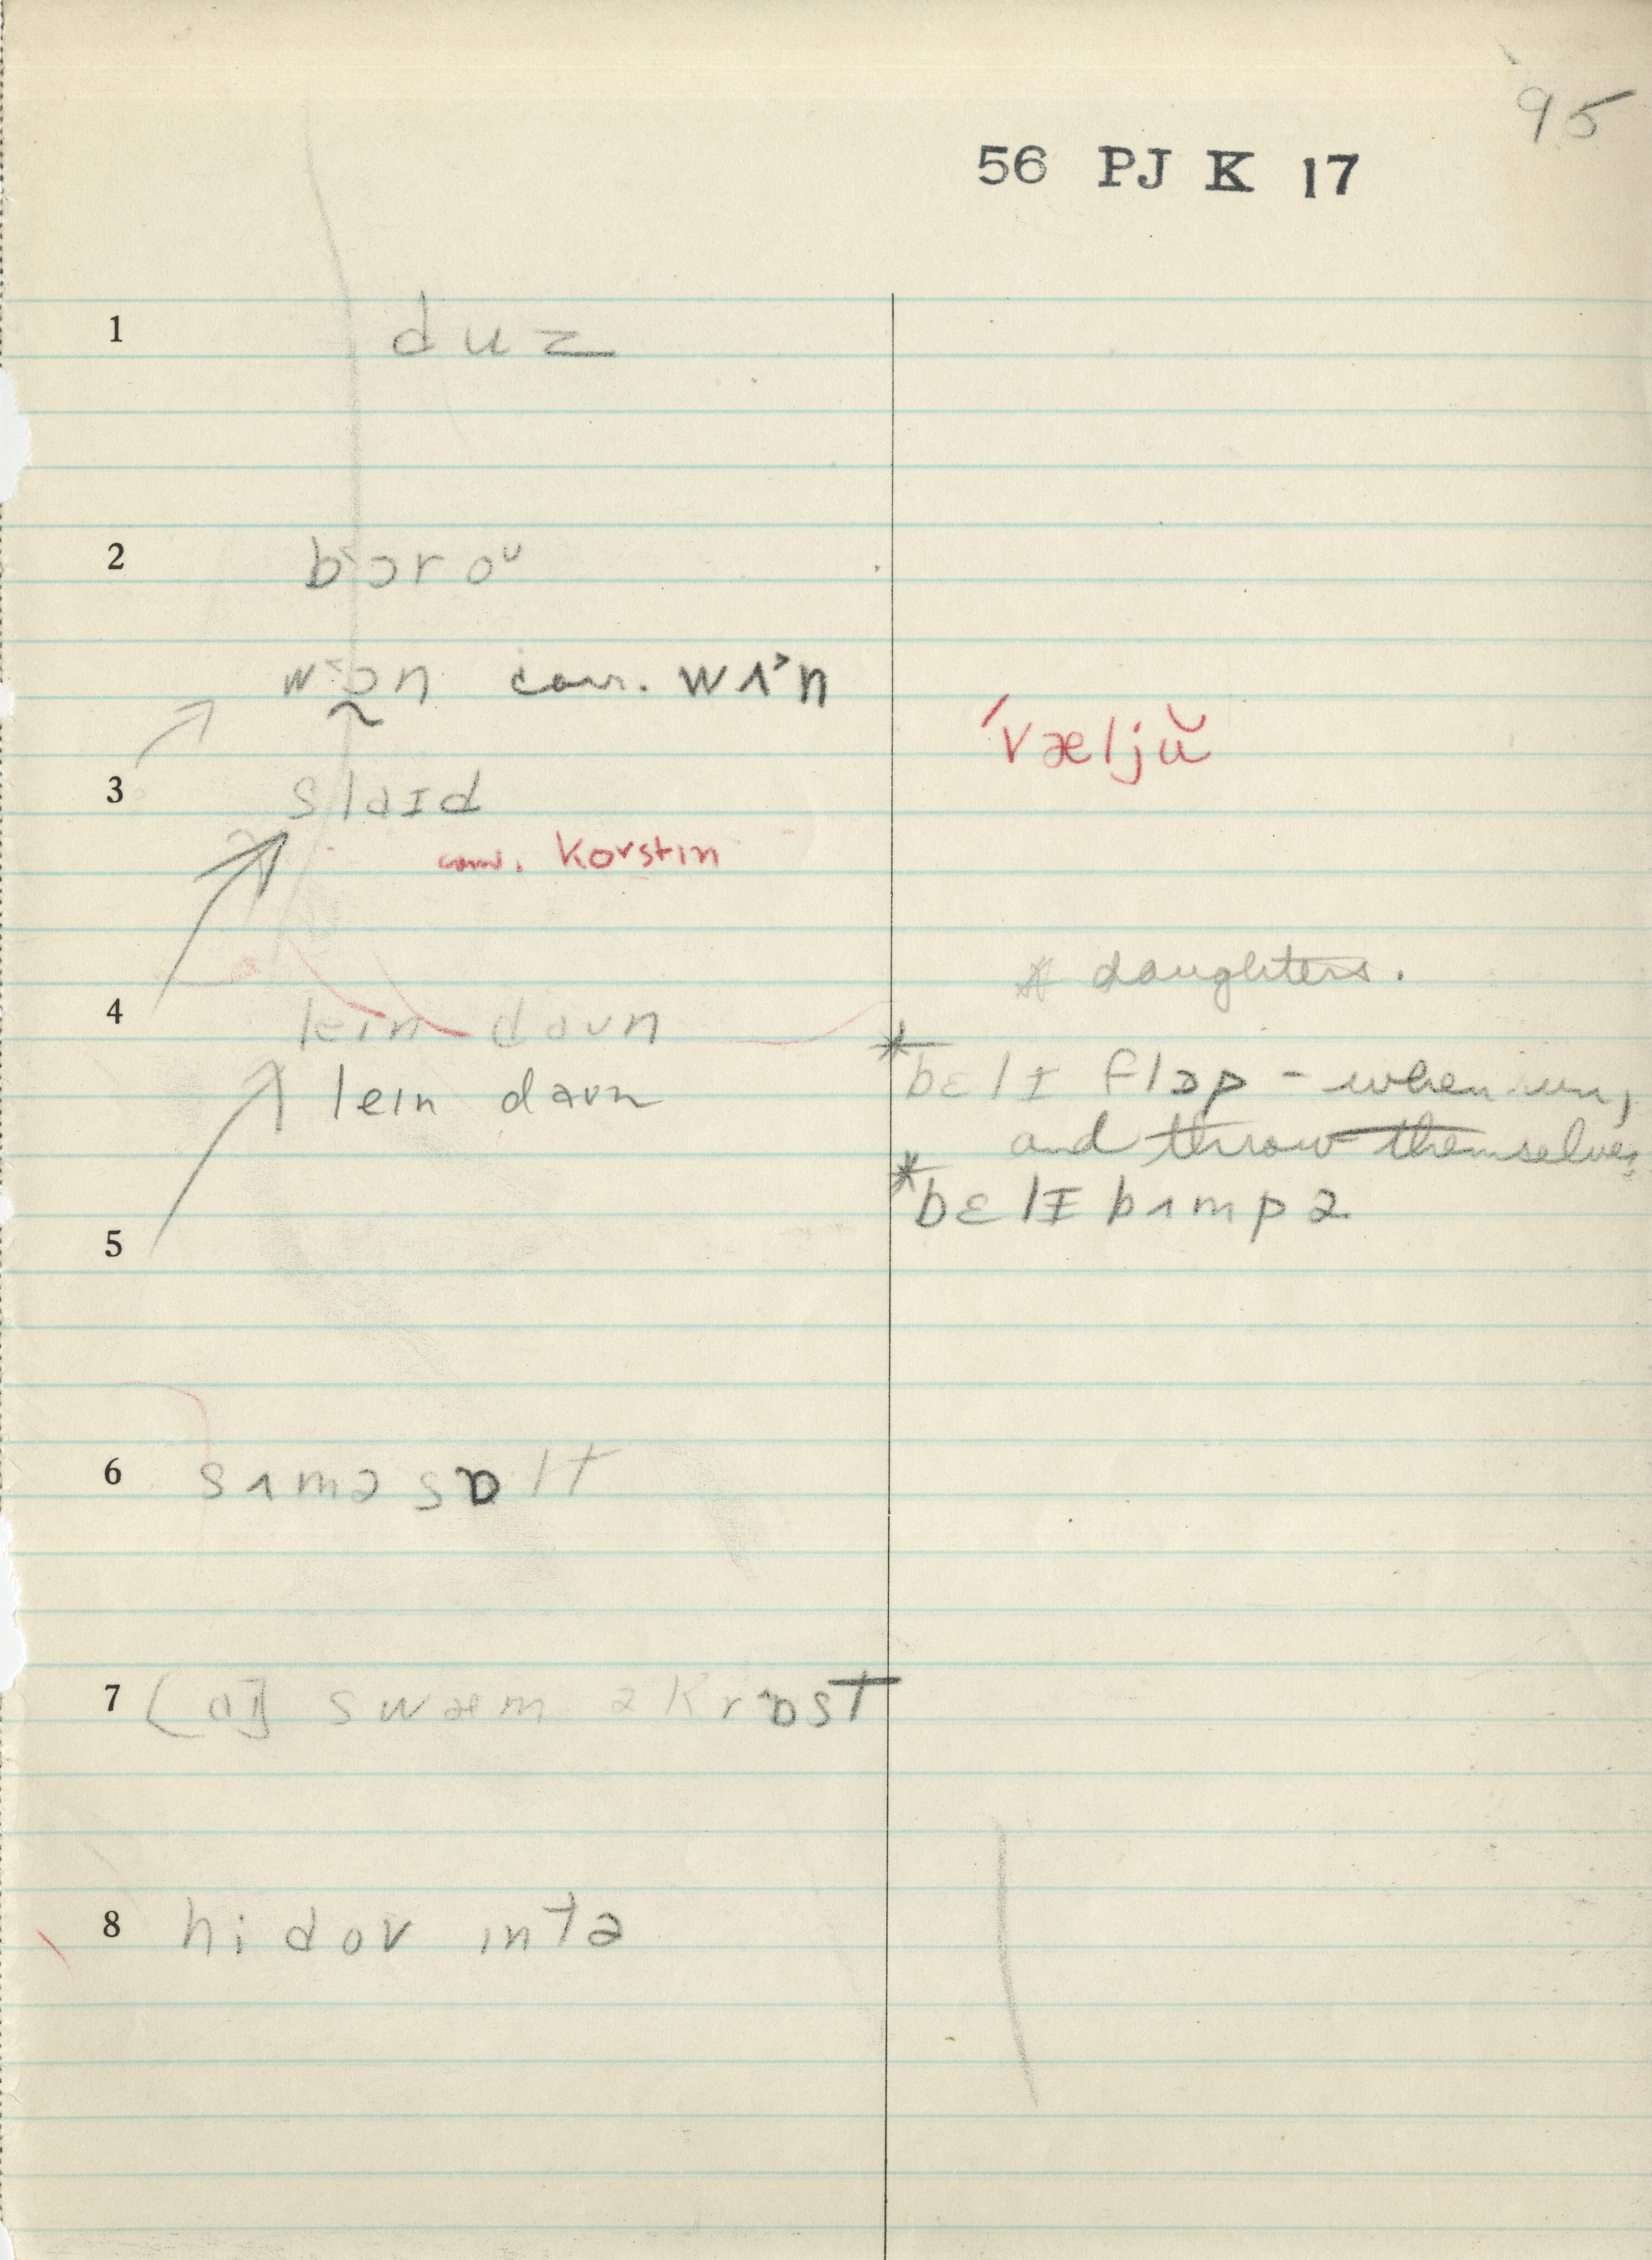 95
56 PJ K 17
1 duz
2 b˂ɔroᴜ
w˂ɔ̰n corr. wʌ˃n
ˊvæljŭ
3 slaɪd
corr. korstɪn
* daughters.
4 leɪn daʊn
*bɛlɪ flɔp - when run,
leɪn daʊn
and throw themselves
*bɛlɪ bʌmpə
5
6 sʌməsɒlt
7 [aɪ] swæm əkrˆɒst
8 hi dov ɪntə